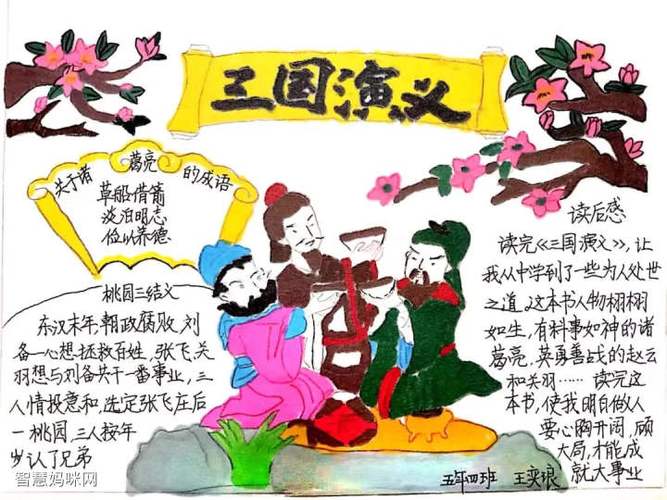 三国演义
关于诸葛亮的成语
草船借箭
淡泊明志
俭以养德
桃园三结义
东汉末年,朝政腐败,刘
备一心想拯救百姓,张飞,关
羽想与刘备共干一番事业,三
人情投意和,选定张飞庄后
一桃园,三人按年
岁认了兄弟
读后感
读完《三国演义》,让
我从中学到了一些为人处世
之道,这本书人物栩栩
如生,有料事如神的诸
葛亮,英勇善战的赵云
和关羽……读完这
本书,使我明白做人
要心胸开阔,顾
大局,才能成
就大事业
五年四班 王奕琅
智慧妈咪网